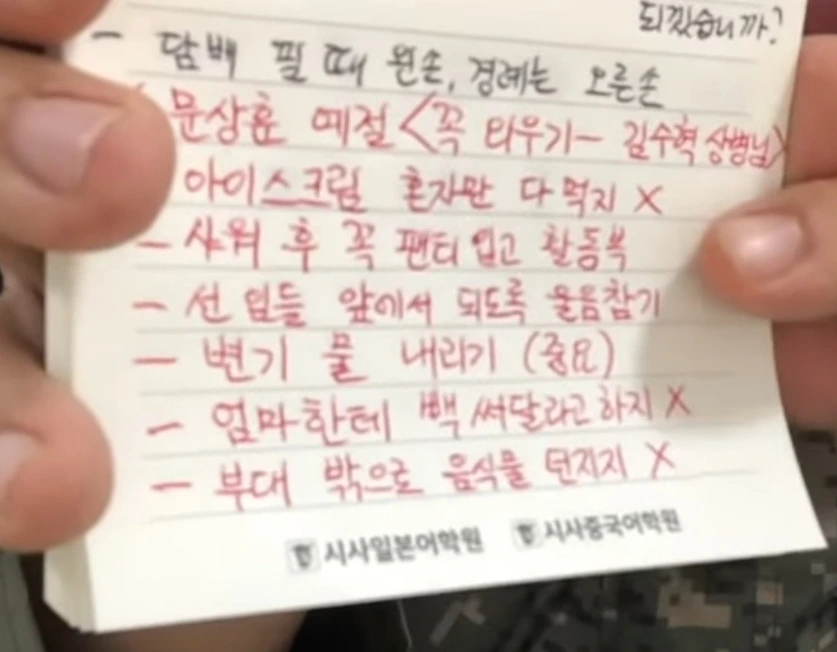 되겠습니까?
- 담배 필 때 왼손, 경례는 오른손
문상훈 예절 <꼭 외우기- 김수혁 상병님>
아이스크림 혼자만 다 먹지 X
- 샤워 후 꼭 팬티 입고 활동복
- 선임들 앞에서 되도록 울음참기
- 변기 물 내리기 (중요)
- 엄마한테 빽 써달라고 하지 X
- 부대 밖으로 음식물 던지지 X
시사일본어학원 시사중국어학원